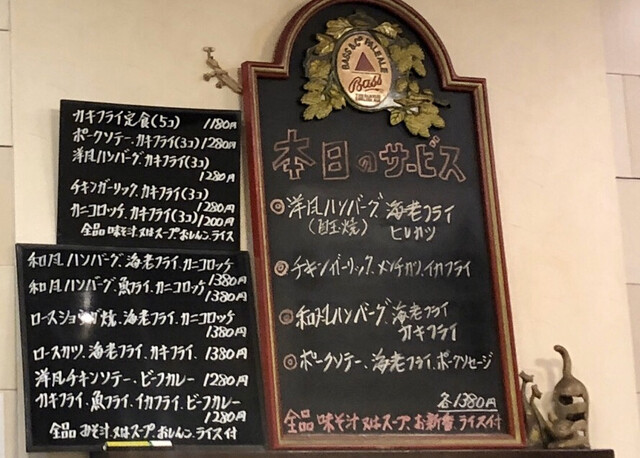 カキフライ定食(5コ) 1180円
ポークソテー、カキフライ(3コ) 1280円
洋風ハンバーグ、カキフライ(3コ)
1280円
チキンガーリック、カキフライ(3コ)
1280円
カニコロッケ、カキフライ(3コ) 1200円
全品 味そ汁又はスープ、おしんこ、ライス
和風ハンバーグ、海老フライ、カニコロッケ
1380円
和風ハンバーグ、魚フライ、カニコロッケ
1380円
ロースショウガ焼、海老フライ、カニコロッケ
1380円
ロースカツ、海老フライ、カキフライ、 1380円
洋風チキンソテー、ビーフカレー 1280円
カキフライ、魚フライ、イカフライ、ビーフカレー
1280円
全品 みそ汁、又はスープ、おしんこ、ライス付
BASS & Co PALE ALE
Bass
本日のサービス
◎洋風ハンバーグ、海老フライ
(目玉焼) ヒレカツ
◎チキンガーリック、メンチカツ、イカフライ
◎和風ハンバーグ、海老フライ
カキフライ
◎ポークソテー、海老フライ、ポークソセージ
各1380円
全品 味そ汁又はスープ、お新香、ライス付